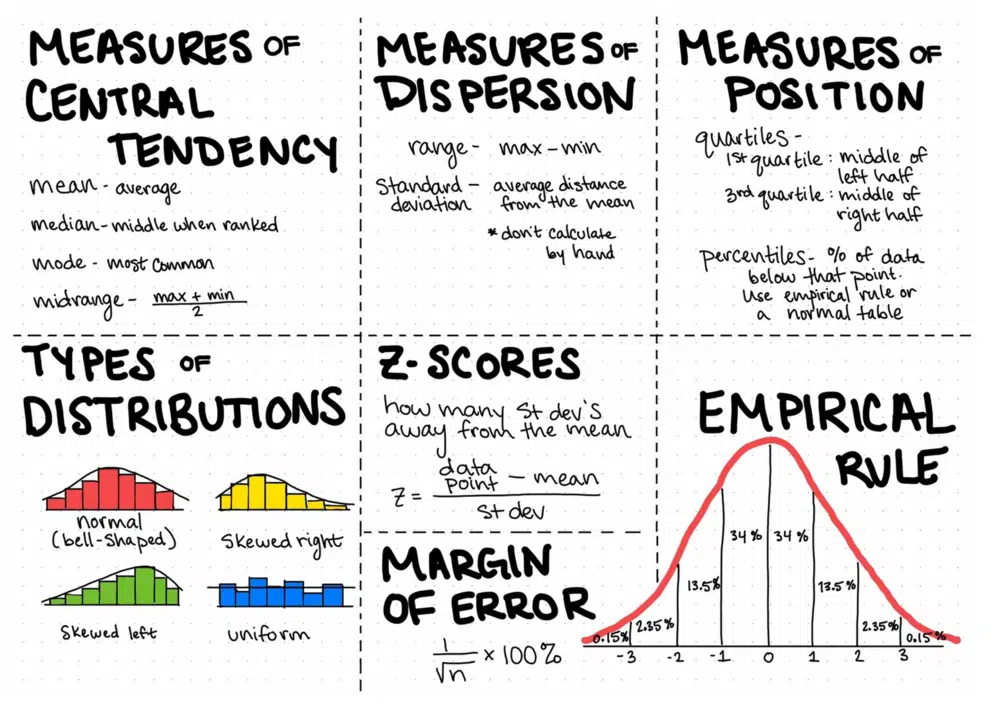 MEASURES OF
CENTRAL
TENDENCY
mean - average
median - middle when ranked
mode - most common
midrange - max + min
2
MEASURES OF
DISPERSION
range - max - min
Standard - average distance
deviation from the mean
* don't calculate
by hand
MEASURES OF
POSITION
quartiles -
1st quartile : middle of
left half
3rd quartile : middle of
right half
percentiles - % of data
below that point.
Use empirical rule or
a normal table
TYPES OF
DISTRIBUTIONS
normal
(bell-shaped)
Skewed right
Skewed left
uniform
Z-SCORES
how many st dev's
away from the mean
Z = data point - mean
st dev
MARGIN
OF ERROR
1
√n × 100%
EMPIRICAL
RULE
34% 34%
13.5% 13.5%
0.15% 2.35% 2.35% 0.15%
-3 -2 -1 0 1 2 3